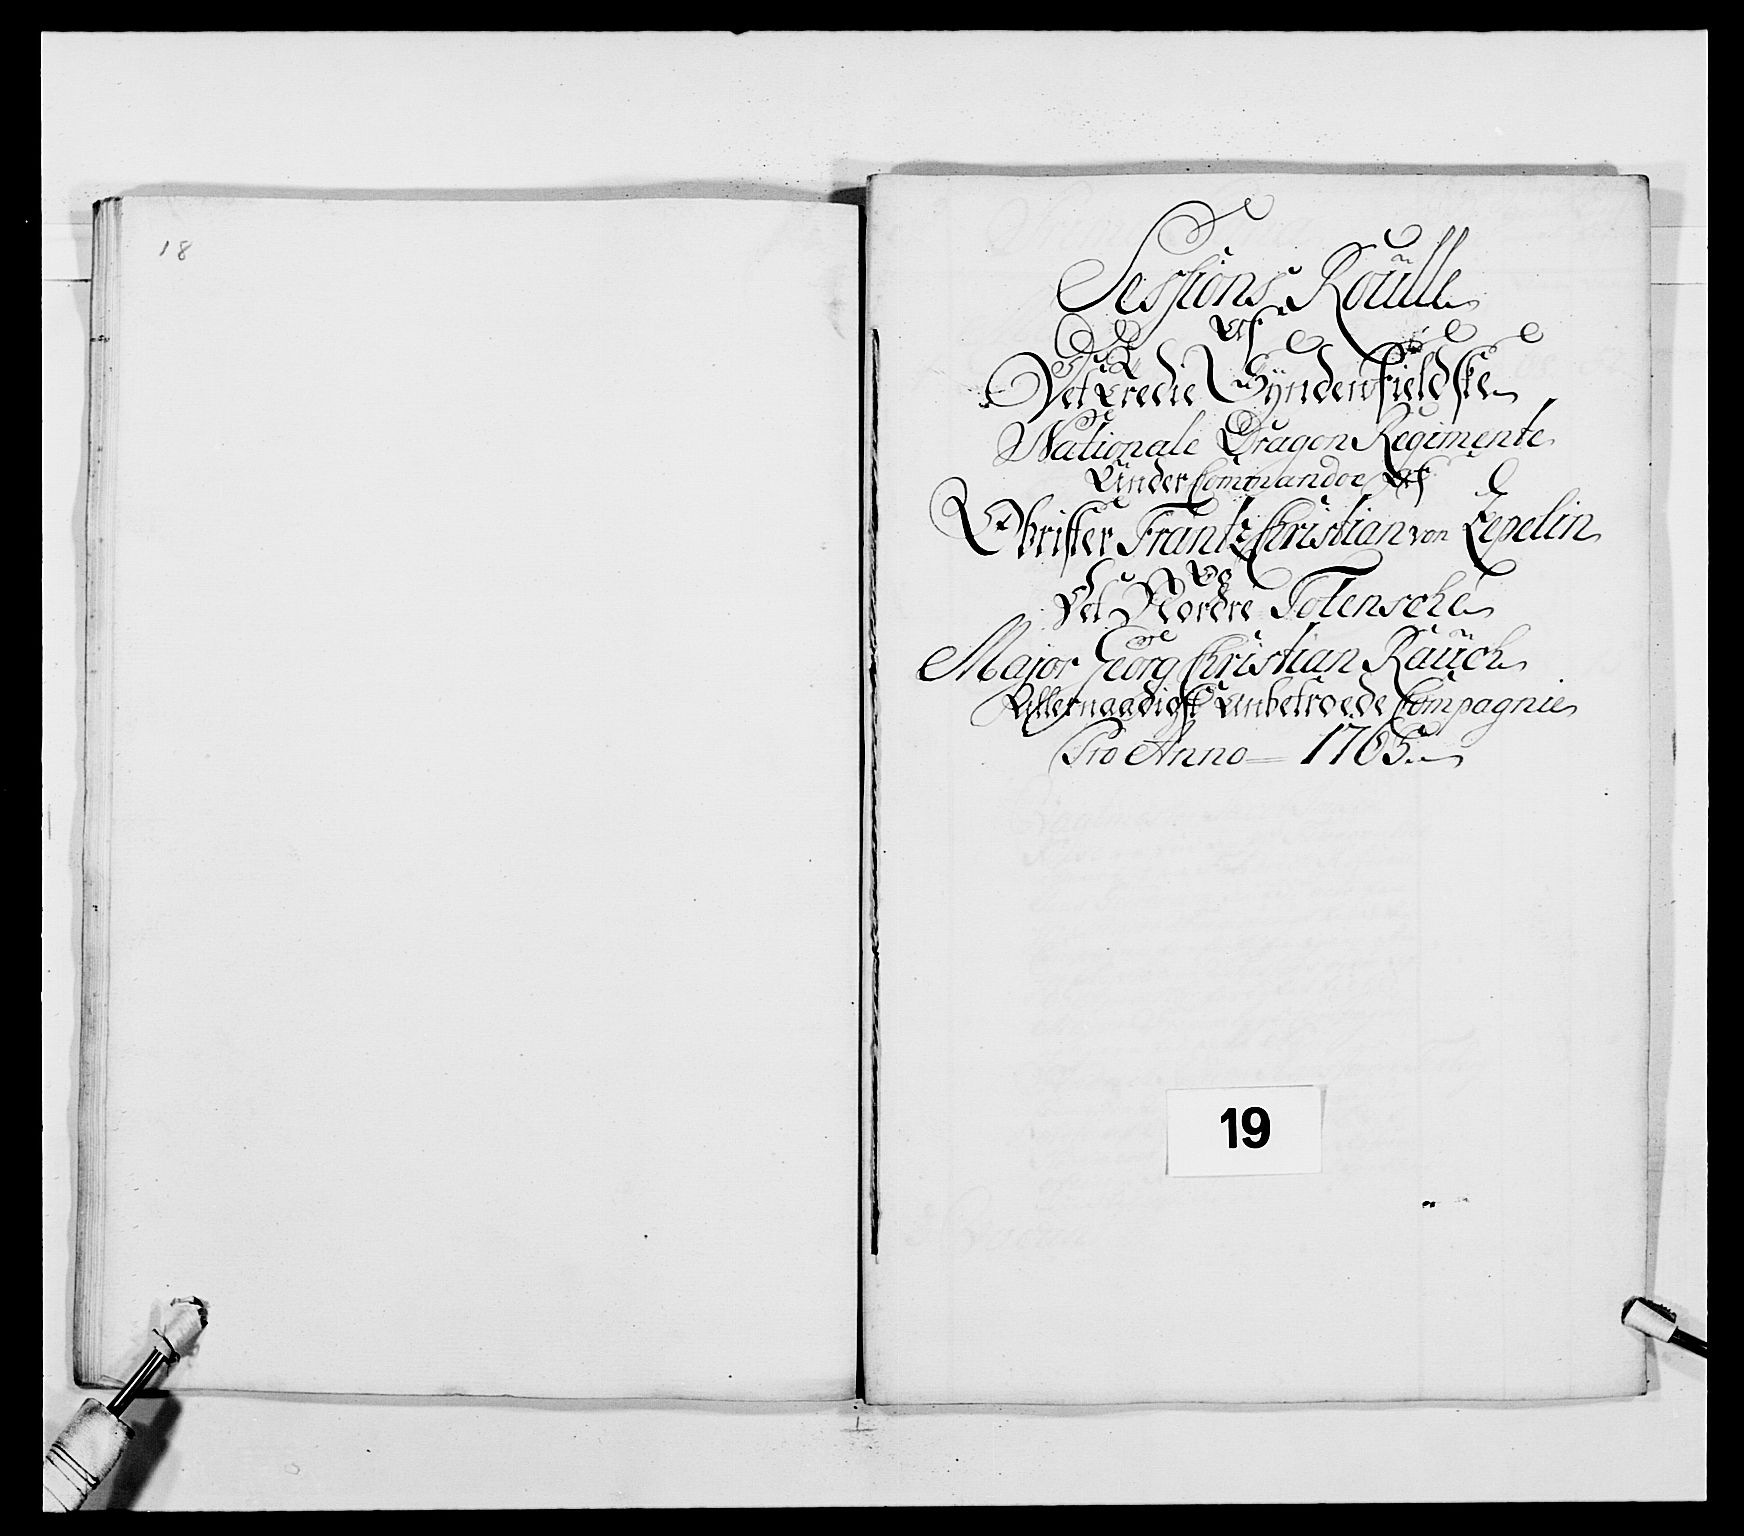 18
Sessions Roülle
Af
Det Tredie Syndenfieldske
Nationale Dragon Regimente
Under Commandoe Af
Obrister Frantz Christian von Lepelin
Og
Det Nordre Totensche
Major Georg Christian Raüch
Allernaadigst Anbetroede Compagnie
Pro Anno 1765.
19